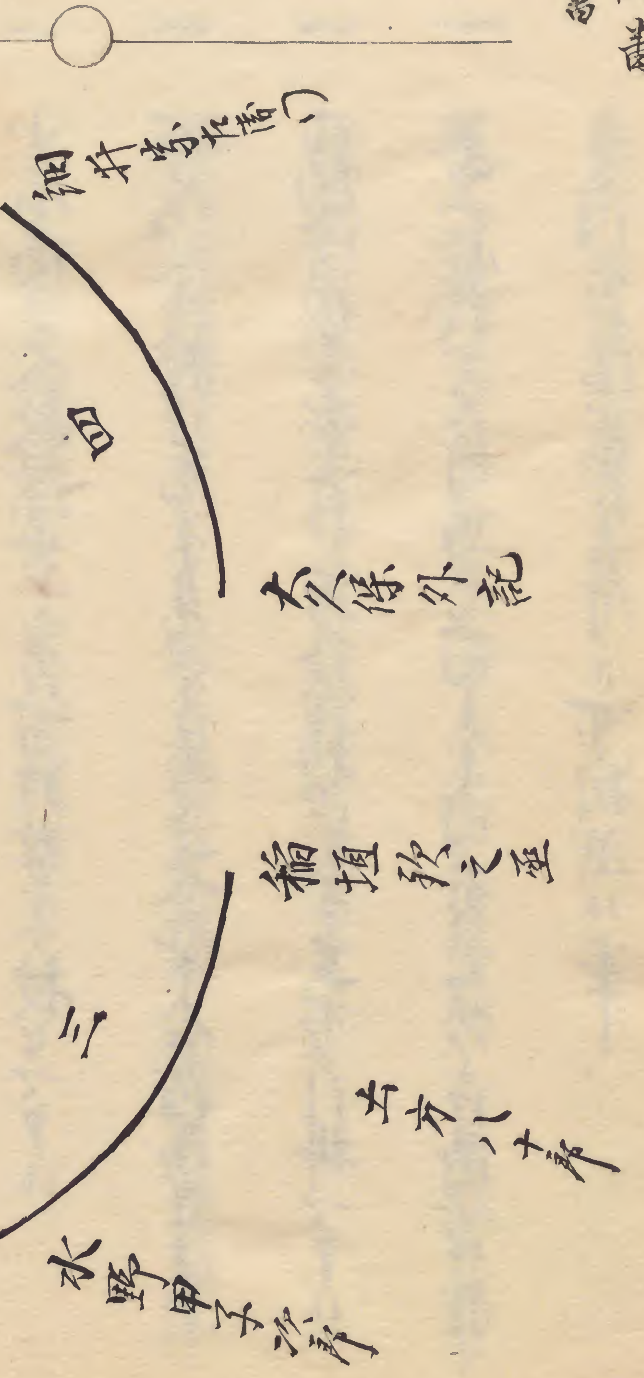 細井宗左衛門
四
大久保外記
稲垣欽之丞
三
土方八十郎
水野甲子次郎